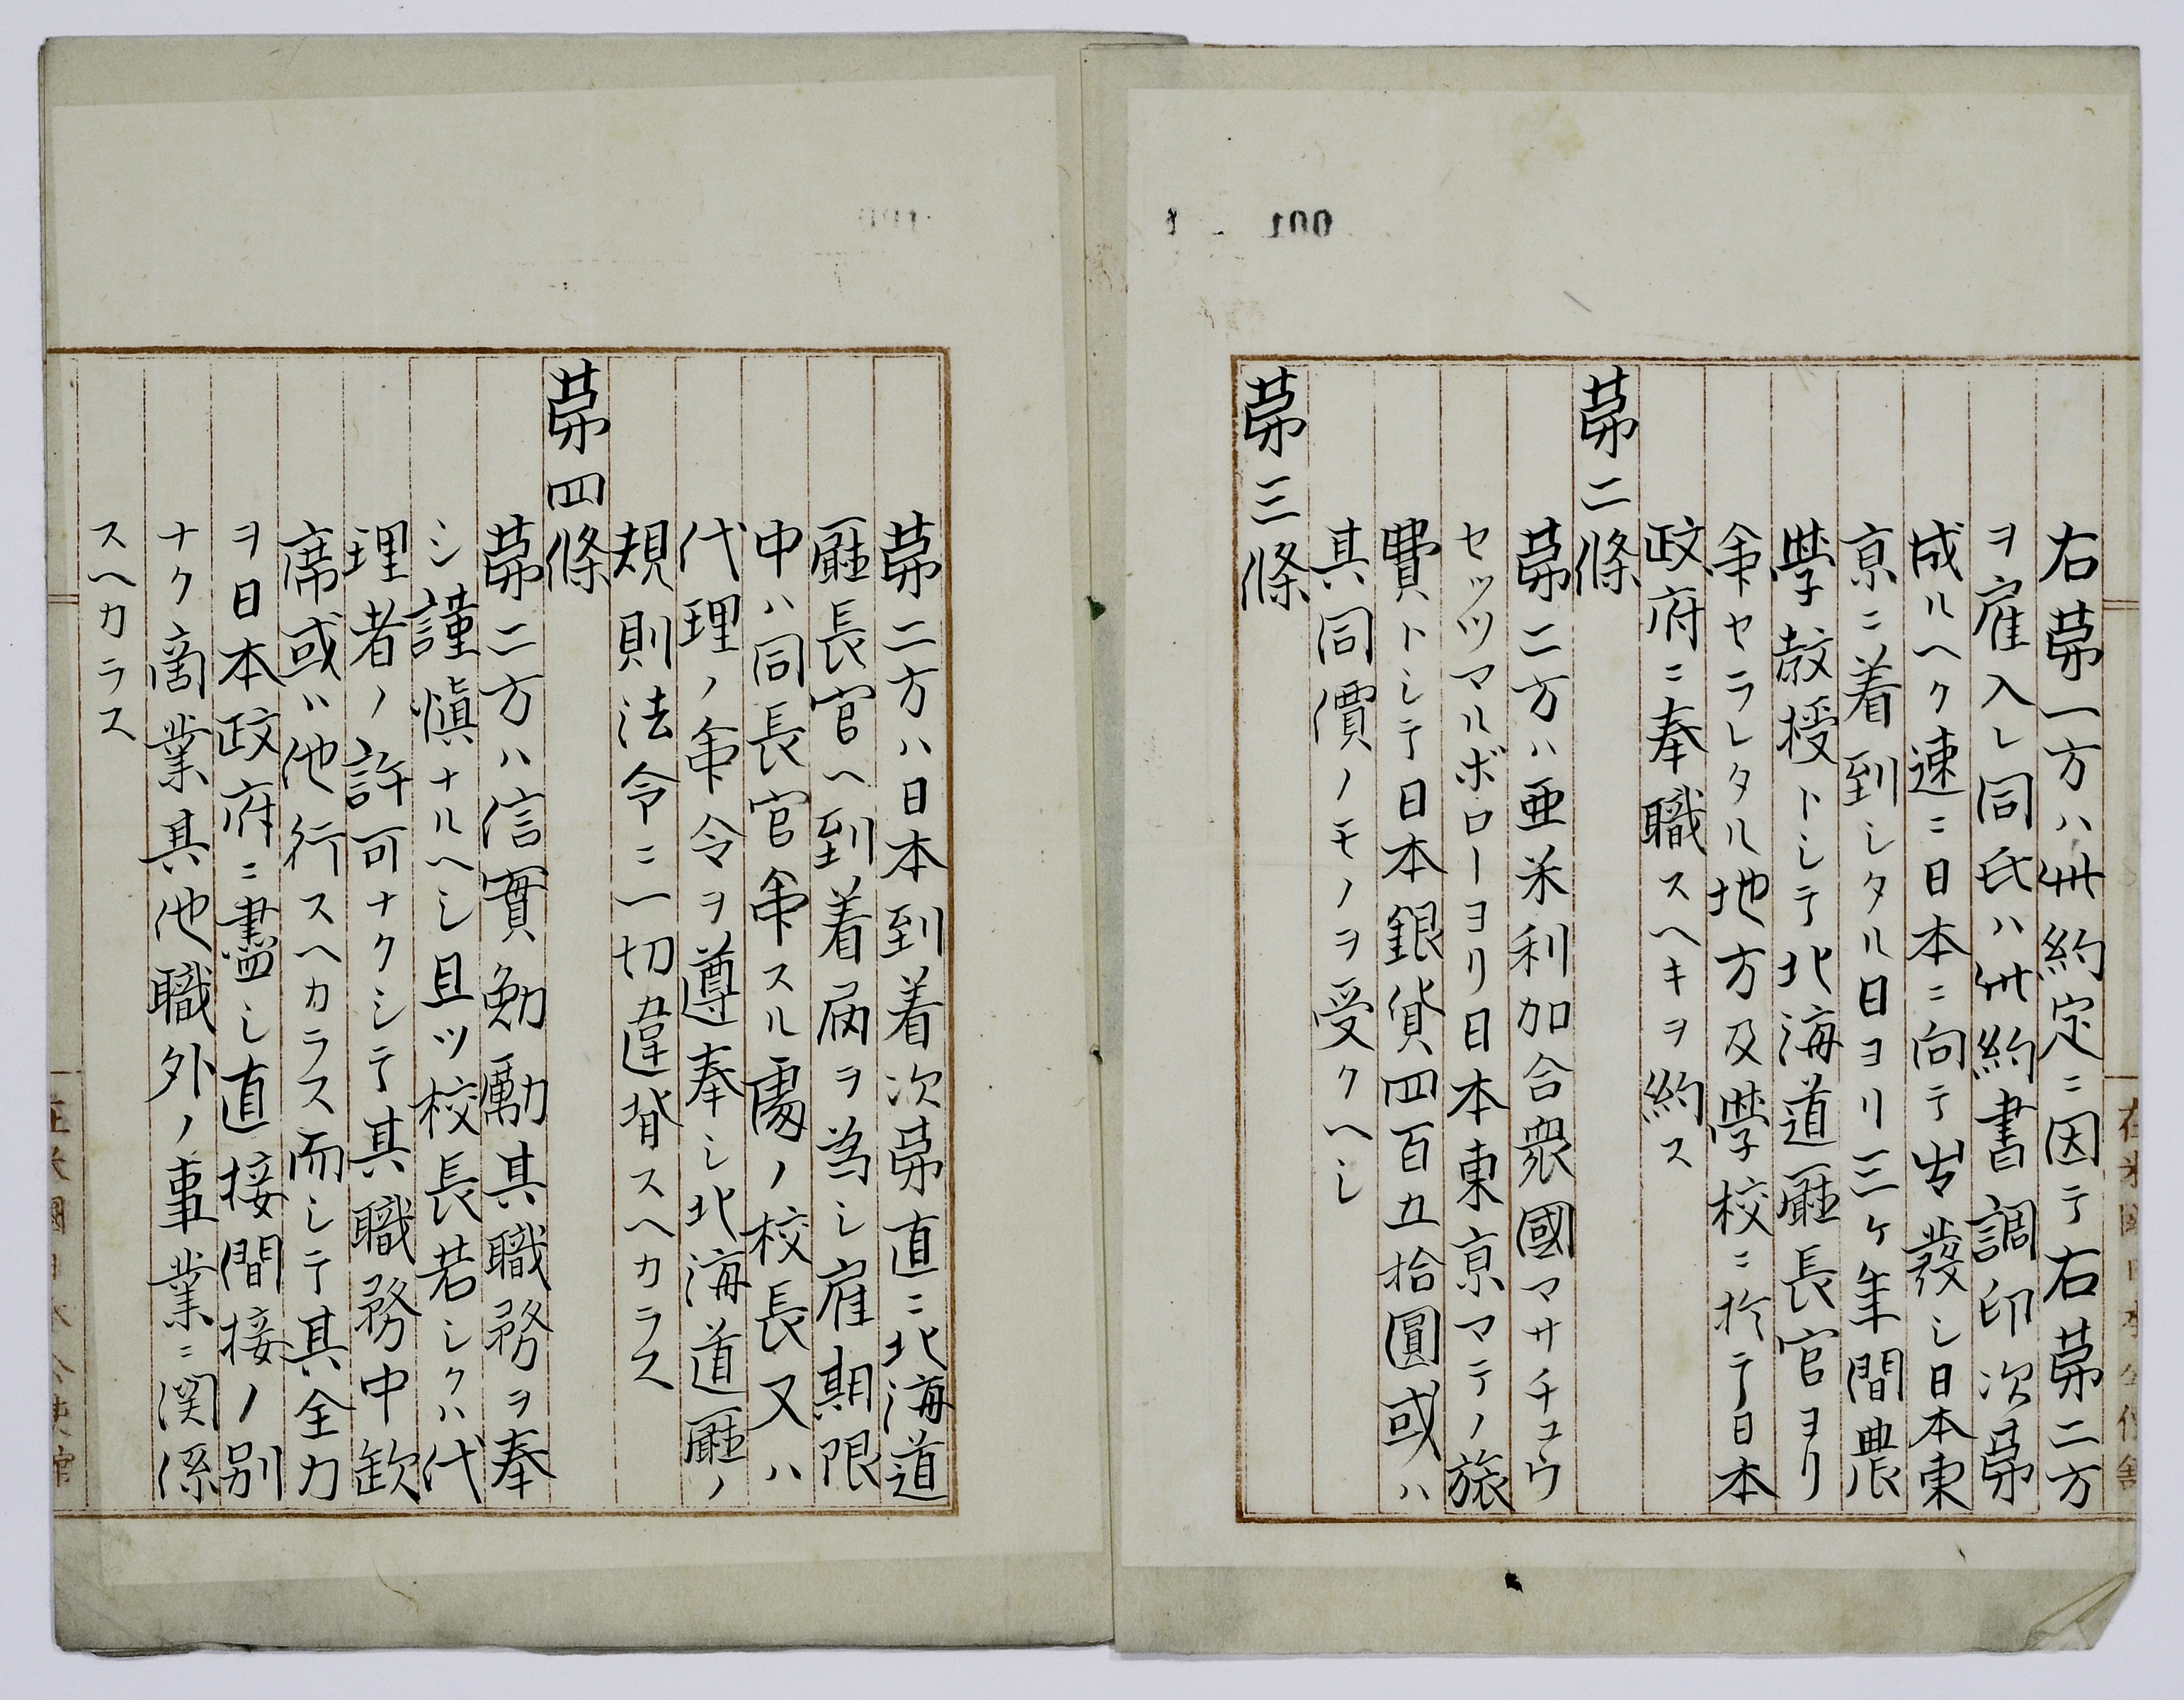 右第一方ハ此約定ニ因テ右第二方
ヲ雇入レ同氏ハ此約書調印次第
成ルヘク速ニ日本ニ向テ出發シ日本東
京ニ着到シタル日ヨリ三ケ年間農
學教授トシテ北海道廳長官ヨリ
命セラレタル地方及學校ニ於テ日本
政府ニ奉職スヘキヲ約ス
第二條
第二方ハ亜米利加合衆國マサチユウ
セッツマルボローヨリ日本東京マテノ旅
費トシテ日本銀貨四百五拾圓或ハ
其同價ノモノヲ受クヘシ
第三條
第二方ハ日本到着次第直ニ北海道
廳長官ヘ到着届ヲ為シ雇期限
中ハ同長官命スル處ノ校長又ハ
代理ノ命令ヲ遵奉シ北海道廳ノ
規則法令ニ一切違背スヘカラス
第四條
第二方ハ信實勉勵其職務ヲ奉
シ謹愼ナルヘシ且ツ校長若シクハ代
理者ノ許可ナクシテ其職務中欽
席或ハ他行スヘカラス而シテ其全力
ヲ日本政府ニ盡シ直接間接ノ別
ナク商業其他職外ノ事業ニ関係
スヘカラス
001
在米國日本公使館